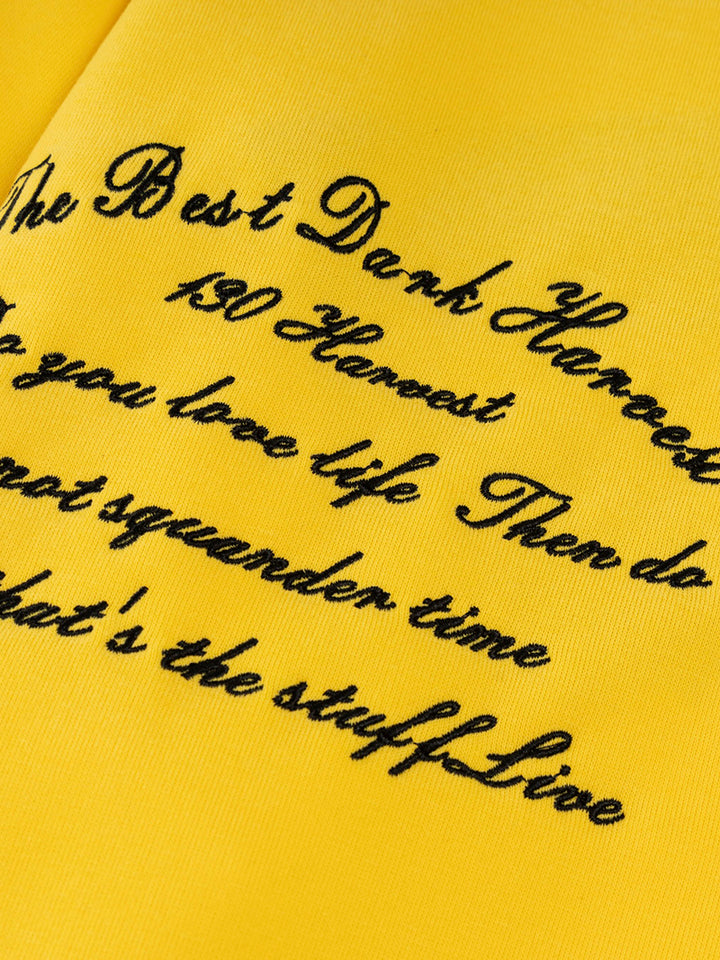 The Best Dark Harvest
130 Harvest
Do you love life Then do
not squander time
that's the stuffLive